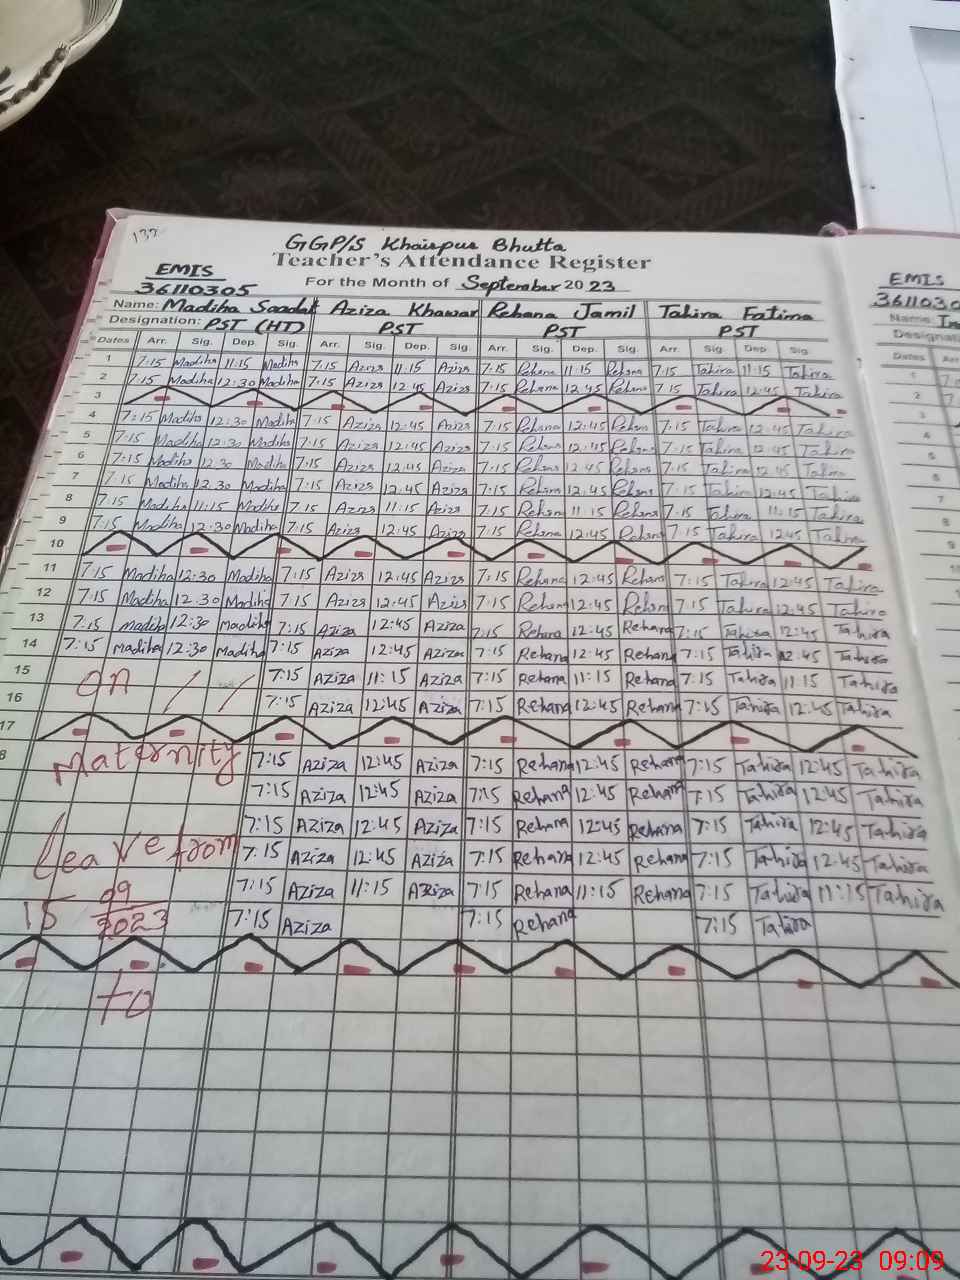 137
GGP/S Khairpur Bhutta
Teacher's Attendance Register
EMIS
36110305
For the Month of September 2023
Name: Madiha Saadat Aziza Khawar Rehana Jamil Tahira Fatima
Designation: PST (HT) PST PST PST
Dates Arr. Sig. Dep. Sig. Arr. Sig. Dep. Sig. Arr. Sig. Dep. Sig. Arr. Sig. Dep. Sig.
1 7:15 Madiha 11:15 Madiha 7:15 Aziza 11:15 Aziza 7:15 Rehana 11:15 Rehana 7:15 Tahira 11:15 Tahira
2 7:15 Madiha 12:30 Madiha 7:15 Aziza 12:45 Aziza 7:15 Rehana 12:45 Rehana 7:15 Tahira 12:45 Tahira
3
4 7:15 Madiha 12:30 Madiha 7:15 Aziza 12:45 Aziza 7:15 Rehana 12:45 Rehana 7:15 Tahira 12:45 Tahira
5 7:15 Madiha 12:30 Madiha 7:15 Aziza 12:45 Aziza 7:15 Rehana 12:45 Rehana 7:15 Tahira 12:45 Tahira
6 7:15 Madiha 12:30 Madiha 7:15 Aziza 12:45 Aziza 7:15 Rehana 12:45 Rehana 7:15 Tahira 12:45 Tahira
7 7:15 Madiha 12:30 Madiha 7:15 Aziza 12:45 Aziza 7:15 Rehana 12:45 Rehana 7:15 Tahira 12:45 Tahira
8 7:15 Madiha 11:15 Madiha 7:15 Aziza 11:15 Aziza 7:15 Rehana 11:15 Rehana 7:15 Tahira 11:15 Tahira
9 7:15 Madiha 12:30 Madiha 7:15 Aziza 12:45 Aziza 7:15 Rehana 12:45 Rehana 7:15 Tahira 12:45 Tahira
10
11 7:15 Madiha 12:30 Madiha 7:15 Aziza 12:45 Aziza 7:15 Rehana 12:45 Rehana 7:15 Tahira 12:45 Tahira
12 7:15 Madiha 12:30 Madiha 7:15 Aziza 12:45 Aziza 7:15 Rehana 12:45 Rehana 7:15 Tahira 12:45 Tahira
13 7:15 Madiha 12:30 Madiha 7:15 Aziza 12:45 Aziza 7:15 Rehana 12:45 Rehana 7:15 Tahira 12:45 Tahira
14 7:15 Madiha 12:30 Madiha 7:15 Aziza 12:45 Aziza 7:15 Rehana 12:45 Rehana 7:15 Tahira 12:45 Tahira
15 on 7:15 Aziza 11:15 Aziza 7:15 Rehana 11:15 Rehana 7:15 Tahira 11:15 Tahira
16 7:15 Aziza 12:45 Aziza 7:15 Rehana 12:45 Rehana 7:15 Tahira 12:45 Tahira
17
8 Maternity 7:15 Aziza 12:45 Aziza 7:15 Rehana 12:45 Rehana 7:15 Tahira 12:45 Tahira
7:15 Aziza 12:45 Aziza 7:15 Rehana 12:45 Rehana 7:15 Tahira 12:45 Tahira
7:15 Aziza 12:45 Aziza 7:15 Rehana 12:45 Rehana 7:15 Tahira 12:45 Tahira
leave from 7:15 Aziza 12:45 Aziza 7:15 Rehana 12:45 Rehana 7:15 Tahira 12:45 Tahira
7:15 Aziza 11:15 Aziza 7:15 Rehana 11:15 Rehana 7:15 Tahira 11:15 Tahira
15 09 2023 7:15 Aziza 7:15 Rehana 7:15 Tahira
to
EMIS
3611030
Name:
Dates
1
2
3
4
5
6
7
8
9
23-09-23 09:09